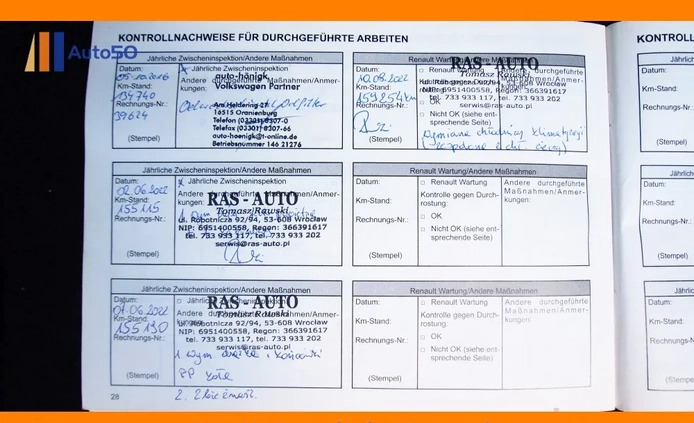 Auto50
KONTROLLNACHWEISE FÜR DURCHGEFÜHRTE ARBEITEN
KONTROLL
Jährliche Zwischeninspektion/Andere Maßnahmen
Datum:
05.10.2016
Km-Stand:
134740
Rechnungs-Nr.:
39624
(Stempel)
Jährliche Zwischeninspektion
Andere durchgeführte Maßnahmen/Anmerkungen:
auto-hönigk
Volkswagen Partner
Am Heidering 21
16515 Oranienburg
Telefon (03301) 8307-0
Telefax (03301) 8307-66
auto-hoenigk@t-online.de
Betriebsnummer 146 21276
Renault Wartung/Andere Maßnahmen
Datum:
10.08.2022
Km-Stand:
159254km
Rechnungs-Nr.:
(Stempel)
Renault
Kontrolle gegen Durch-
OK
Nicht OK (siehe ent-
sprechende Seite)
RAS - AUTO
Tomasz Rawski
ul. Robotnicza 92/94, 53-608
NIP: 6951400558, Regon: 366391617
tel. 733 933 117, tel. 733 933 202
serwis@ras-auto.pl
wymiana chłodnicy klimatyzacji
Jährliche Zwischeninspektion/Andere Maßnahmen
Datum:
02.06.2022
Km-Stand:
155115
Rechnungs-Nr.:
(Stempel)
Jährliche Zwischeninspektion
Andere durchgeführte Maßnahmen/Anmer-
kungen:
RAS - AUTO
Tomasz Rawski
ul. Robotnicza 92/94, 53-608 Wrocław
NIP: 6951400558, Regon: 366391617
tel. 733 933 117, tel. 733 933 202
serwis@ras-auto.pl
Renault Wartung/Andere Maßnahmen
Datum:
Km-Stand:
Rechnungs-Nr.:
(Stempel)
Renault Wartung
Kontrolle gegen Durch-
rostung:
OK
Nicht OK (siehe ent-
sprechende Seite)
Andere durchgeführte
Maßnahmen/Anmer-
kungen:
Jährliche Zwischeninspektion/Andere Maßnahmen
Datum:
01.06.2022
Km-Stand:
155130
Rechnungs-Nr.:
(Stempel)
RAS - AUTO
Tomasz Rawski
ul. Robotnicza 92/94, 53-608 Wrocław
NIP: 6951400558, Regon: 366391617
tel. 733 933 117, tel. 733 933 202
serwis@ras-auto.pl
Renault Wartung/Andere Maßnahmen
Datum:
Km-Stand:
Rechnungs-Nr.:
(Stempel)
Renault Wartung
Kontrolle gegen Durch-
rostung:
OK
Nicht OK (siehe ent-
sprechende Seite)
Andere durchgeführte
Maßnahmen/Anmer-
kungen:
28
Datum:
Km-Stand:
Rechnungs-Nr.:
(Stempel)
Datum:
Km-Stand:
Rechnungs-Nr.:
(Stempel)
Datum:
Km-Stand:
Rechnungs-Nr.:
(Stempel)